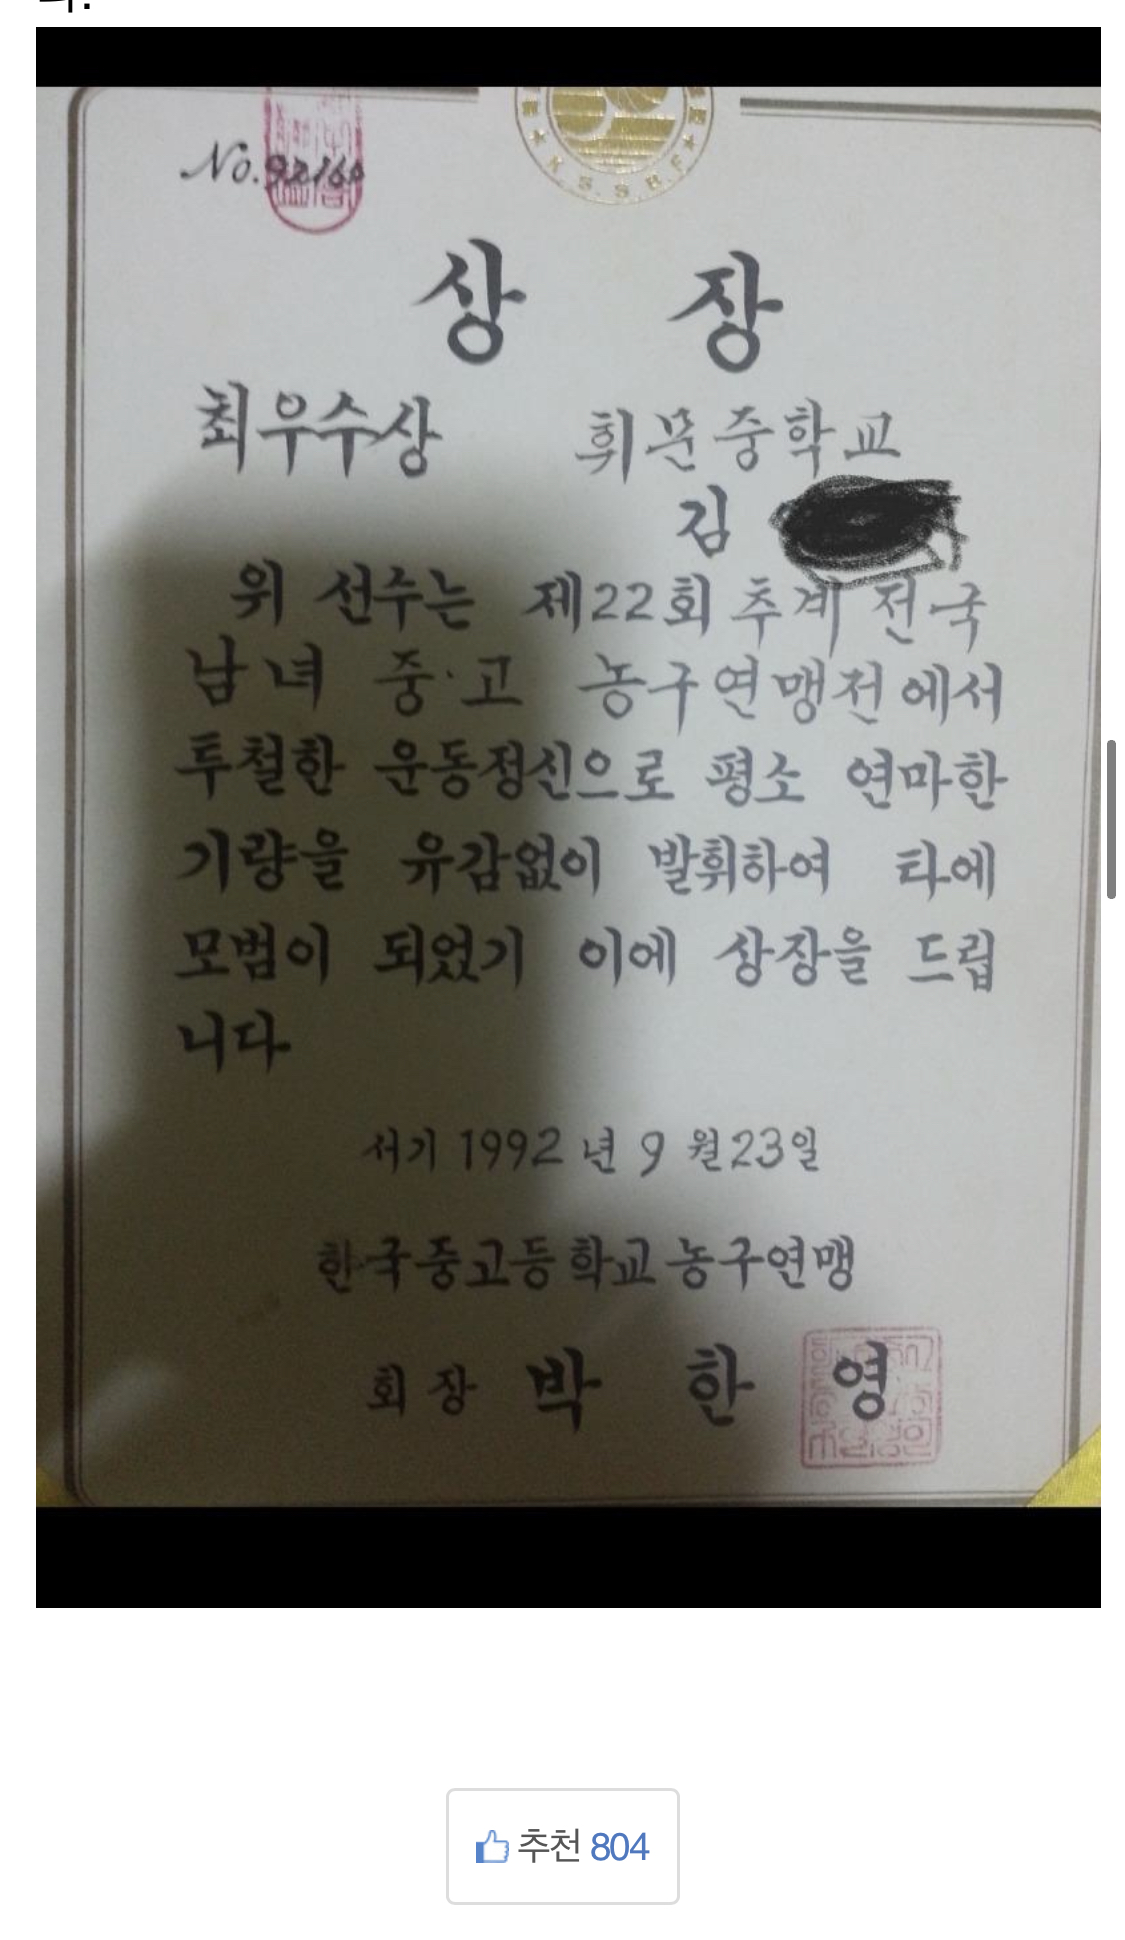 No. 92160
K.S.S.B.F
상 장
최우수상 휘문중학교
김
위 선수는 제22회 추계 전국
남녀 중·고 농구연맹전에서
투철한 운동정신으로 평소 연마한
기량을 유감없이 발휘하여 타에
모범이 되었기 이에 상장을 드립
니다
서기 1992년 9월 23일
한국중고등학교농구연맹
회장 박 한 영
추천 804